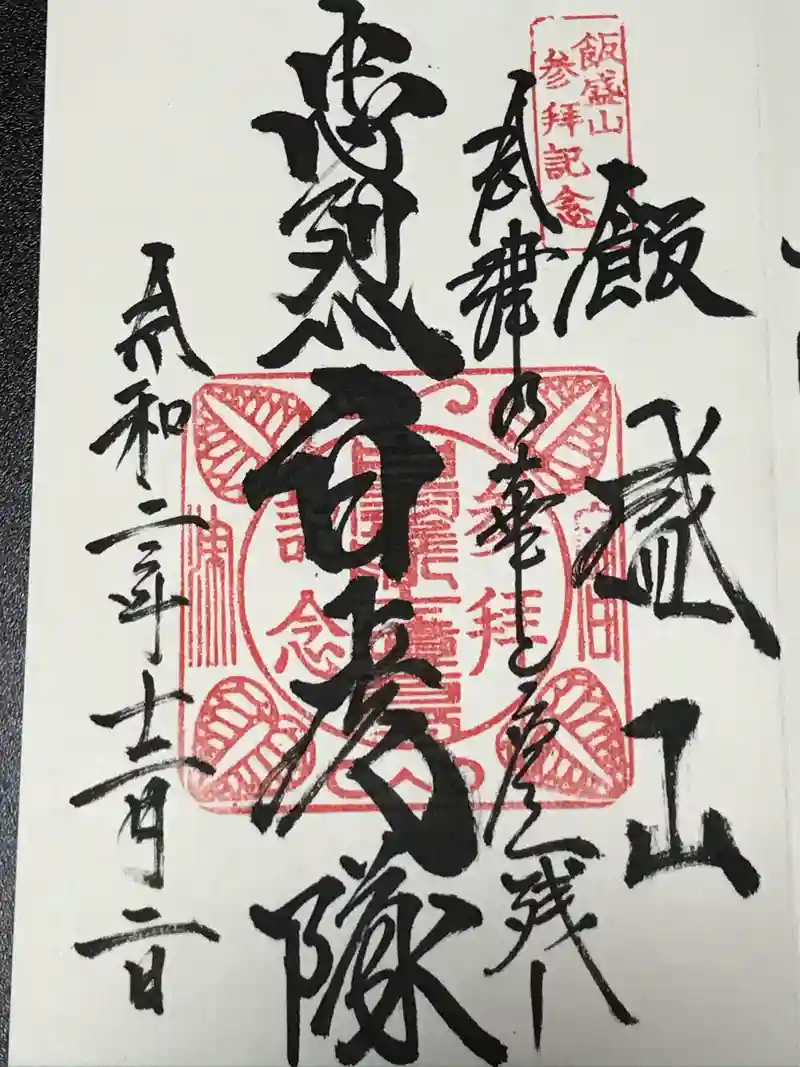 飯盛山
参拝記念
飯盛山
乃華と 残し
忠烈白虎隊
参拝
記念
令和二年十二月二日